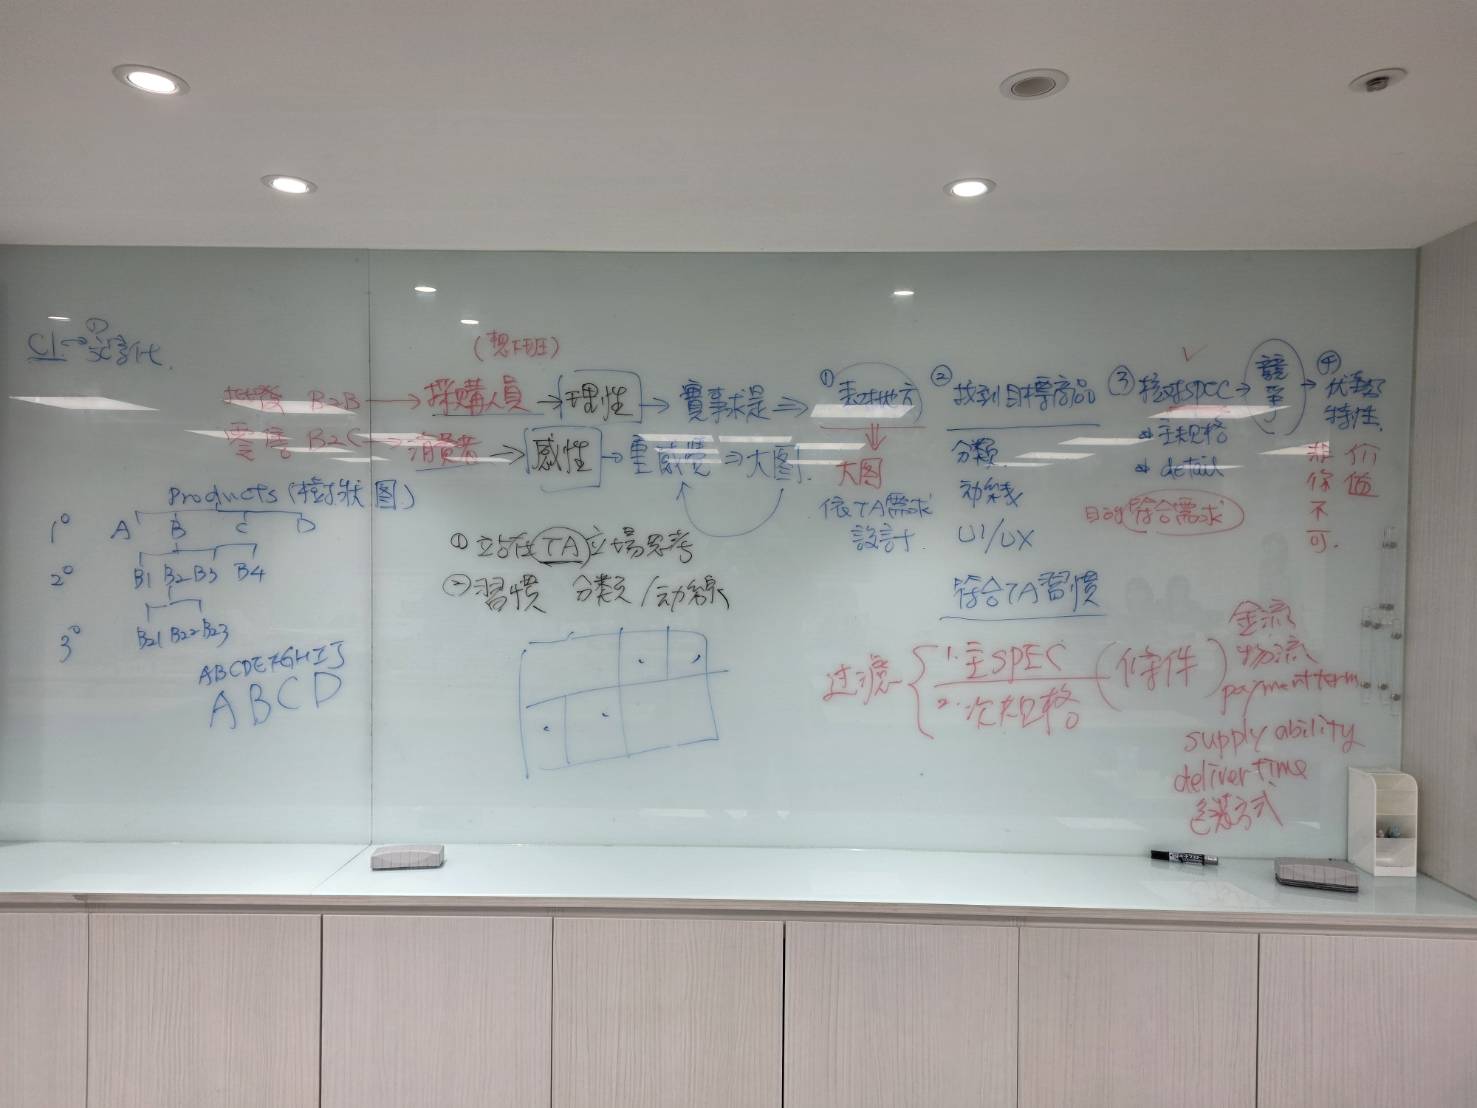 CI → ①
(想下班)
批發 B2B → 採購人員 → 理性 → 實事求是 ⇒
零售 B2C → 消費者 → 感性 → 重感覺 ⇒ 大图.
Products (樹狀图)
1° A B C D
2° B1 B2 B3 B4
3° B21 B22 B23
ABCDEFGHIJ
ABCD
① 站在TA立場思考
② 習慣 分類/动線
① 来对地方
大图
依TA需求
設計.
② 找到目標商品
分類
动線
UI/UX
符合TA習慣
③ 核对SPEC → 競爭 →
主規格
detail
目的 符合需求
④ 优勢
特性.
非你不可.
价值
过濾 { 1. 主SPEC
2. 次規格 (條件)
金流
物流
payment term
supply ability
deliver time
包裝方式